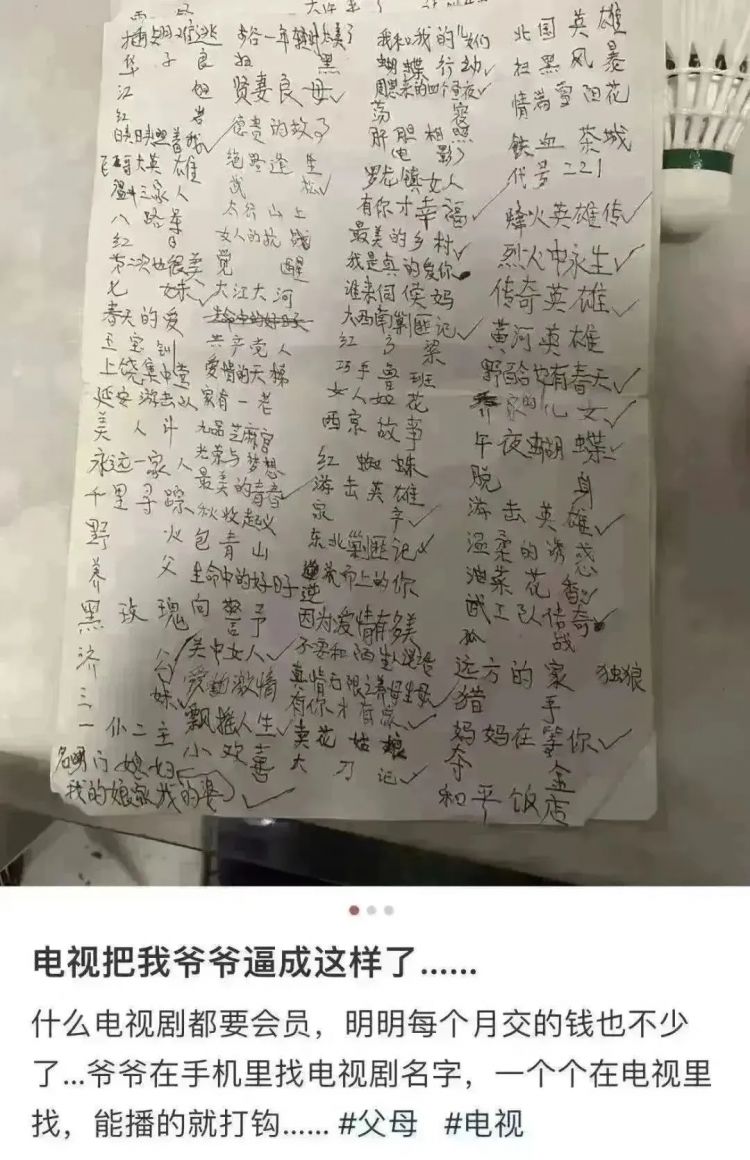 插翅难逃
华子良
江姐
红岩
日月照着我
百哥大英雄
温州一家人
八路军
红日
第二次也很美
七妹
春天的爱
王宝钏
上饶集中营
延安游击队
美人计
永远一家人
千里寻踪
野火包青山
养父
黑玫瑰
济公
三妹
一仆二主
名男门媳妇
我的娘家我的婆
扫黑
贤妻良母
德贵的故事
绝路逢生
武松
太行山上
女人的抗战
觉醒
大江大河
生命中的好日子
共产党人
爱情的天梯
家有一老
九品芝麻官
光荣与梦想
最美的青春
秋收起义
生命中的好日子
向警予
关中女人
爱动激情
飘摇人生
小欢喜
我和我的儿女们
蝴蝶行动
周恩来的四个昼夜
荡寇
肝胆相照
(电影)
罗龙镇女人
有你才幸福
最美的乡村
我是真的爱你
谁来伺候妈
大西南剿匪记
红高粱
巧手鲁班
女人如花
西京故事
红蜘蛛
游击英雄
东北剿匪记
逆流而上的你
因为爱情有多美
不要和陌生人说话
真情无限之养母生母
有你才有家
卖花姑娘
大刀记
北国英雄
扫黑风暴
情满雪阳花
铁血茶城
代号221
烽火英雄传
烈火中永生
传奇英雄
黄河英雄
野百合也有春天
养家的儿女
午夜蝴蝶
脱身
游击英雄
温柔的诱惑
油菜花香
武工队传奇
孤战
远方的家
独狼
猎手
妈妈在等你
夺金
和平饭店
电视把我爷爷逼成这样了......
什么电视剧都要会员，明明每个月交的钱也不少
了...爷爷在手机里找电视剧名字，一个个在电视里
找，能播的就打钩...... #父母 #电视